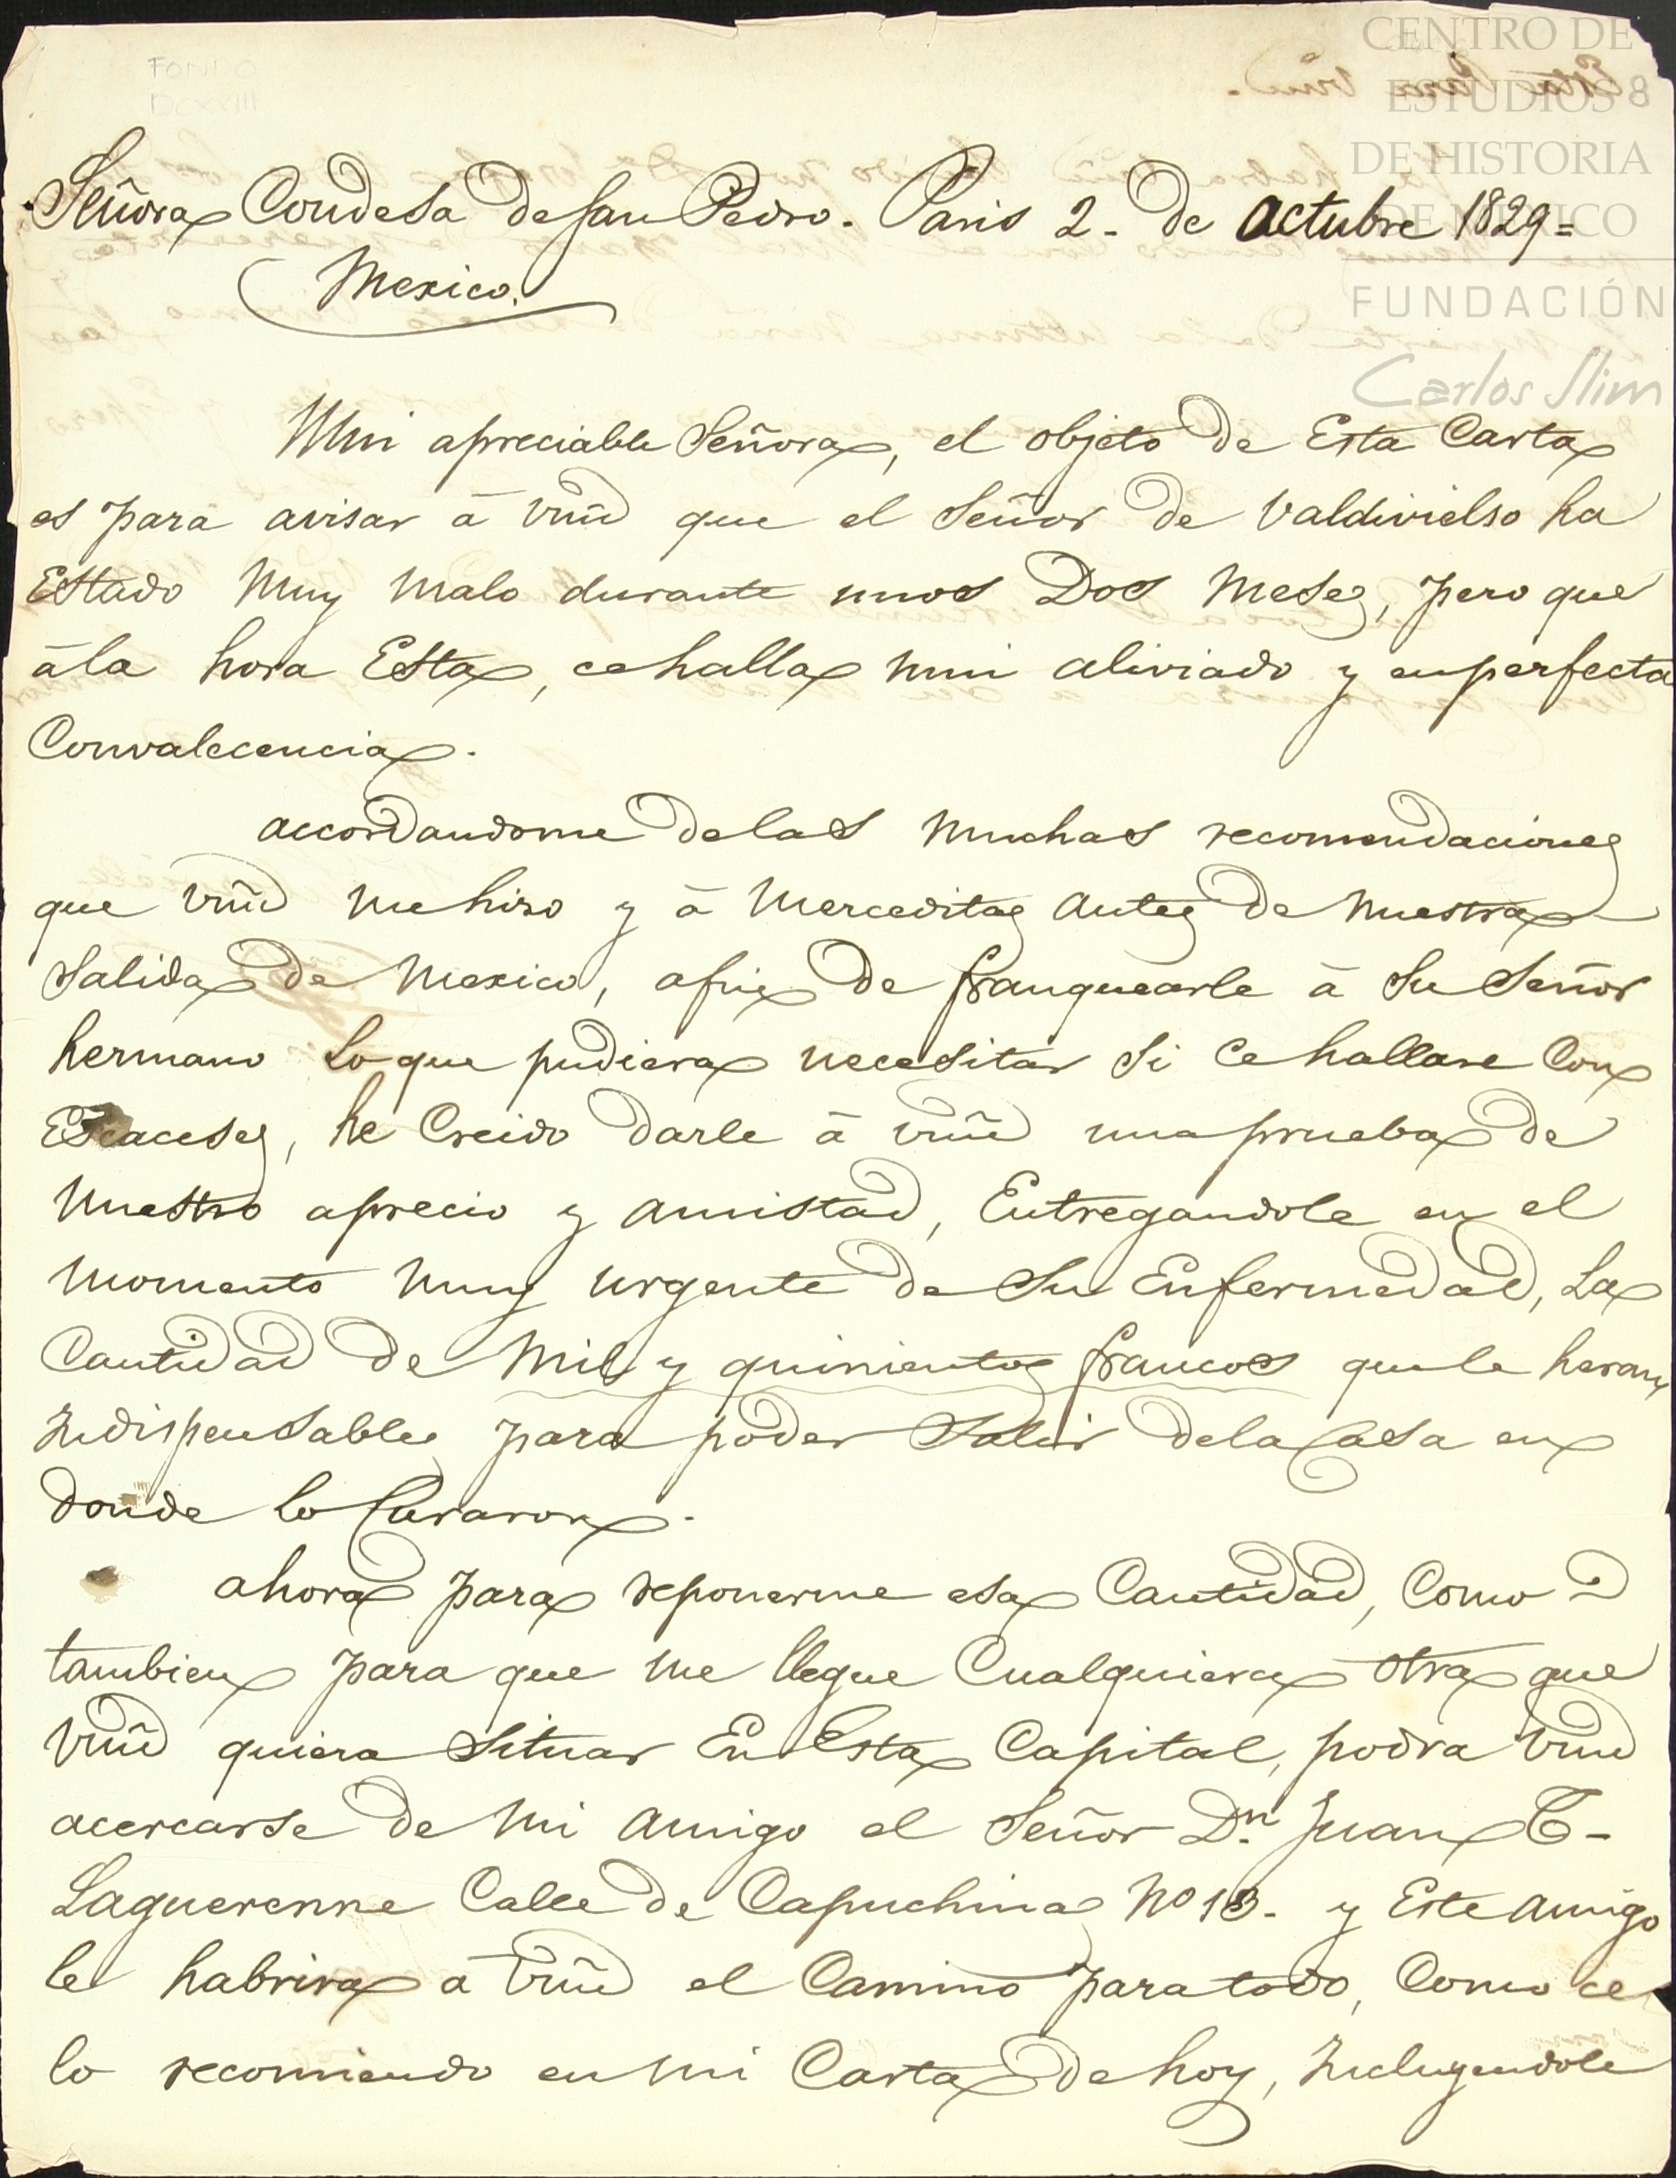 CENTRO DE
ESTUDIOS 8
DE HISTORIA
DE MÉXICO
FUNDACIÓN
Carlos Slim
FONDO
DCXXIII
Señora Condesa de San Pedro. Paris 2. de Octubre 1829=
Mexico.
Mui apreciable Señora, el objeto de Esta Carta
es para avisar à Vmd que el Señor de Valdivielso ha
Estado Muy Malo durante unos Dos Meses, pero que
àla hora Esta, ce halla mui aliviado y en perfecta
Convalecencia.
accordandome de las Muchas recomendaciones
que Vmd me hizo y à Merceditas Antes de Nuestra
Salida de Mexico, afin de franquearle à Su Señor
hermano Lo que pudiera necesitar Si Ce hallare Con
Escaceses, he Creido darle à Vmd una prueba de
Nuestro aprecio y Amistad, Entregandole en el
Momento Muy urgente de Su Enfermedad, La
Cantidad de Mil y quinientos francos que le heran
Indispensables para poder Salir de la Casa en
donde lo Curaron.
ahora para reponerme esa Cantidad, Como
tambien para que me llegue Cualquiera otra que
Vmd quiera Situar En Esta Capital, podra Vmd
acercarse de Mi Amigo el Señor Dn. Juan
Laguerenne Calle de Capuchinas No y Este Amigo
le habrira à Vmd el Camino para todo, Como ce
lo recomiendo en Mi Carta de hoy, Incluyendole